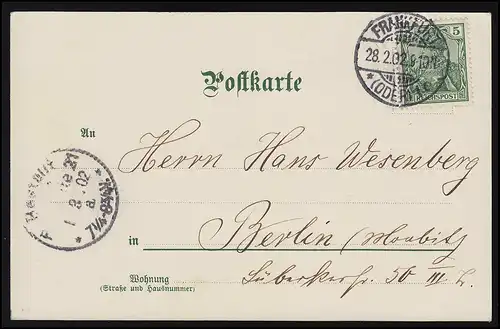 FRANKFURT
28.2.02.
* (ODER)
5
REICHSPOST
Postkarte
An
Herrn Hans Wesenberg
in Berlin (Moabit)
Wohnung
(Straße und Hausnummer)
Lübeckerstr. 50 III L.
02
7¼-8½